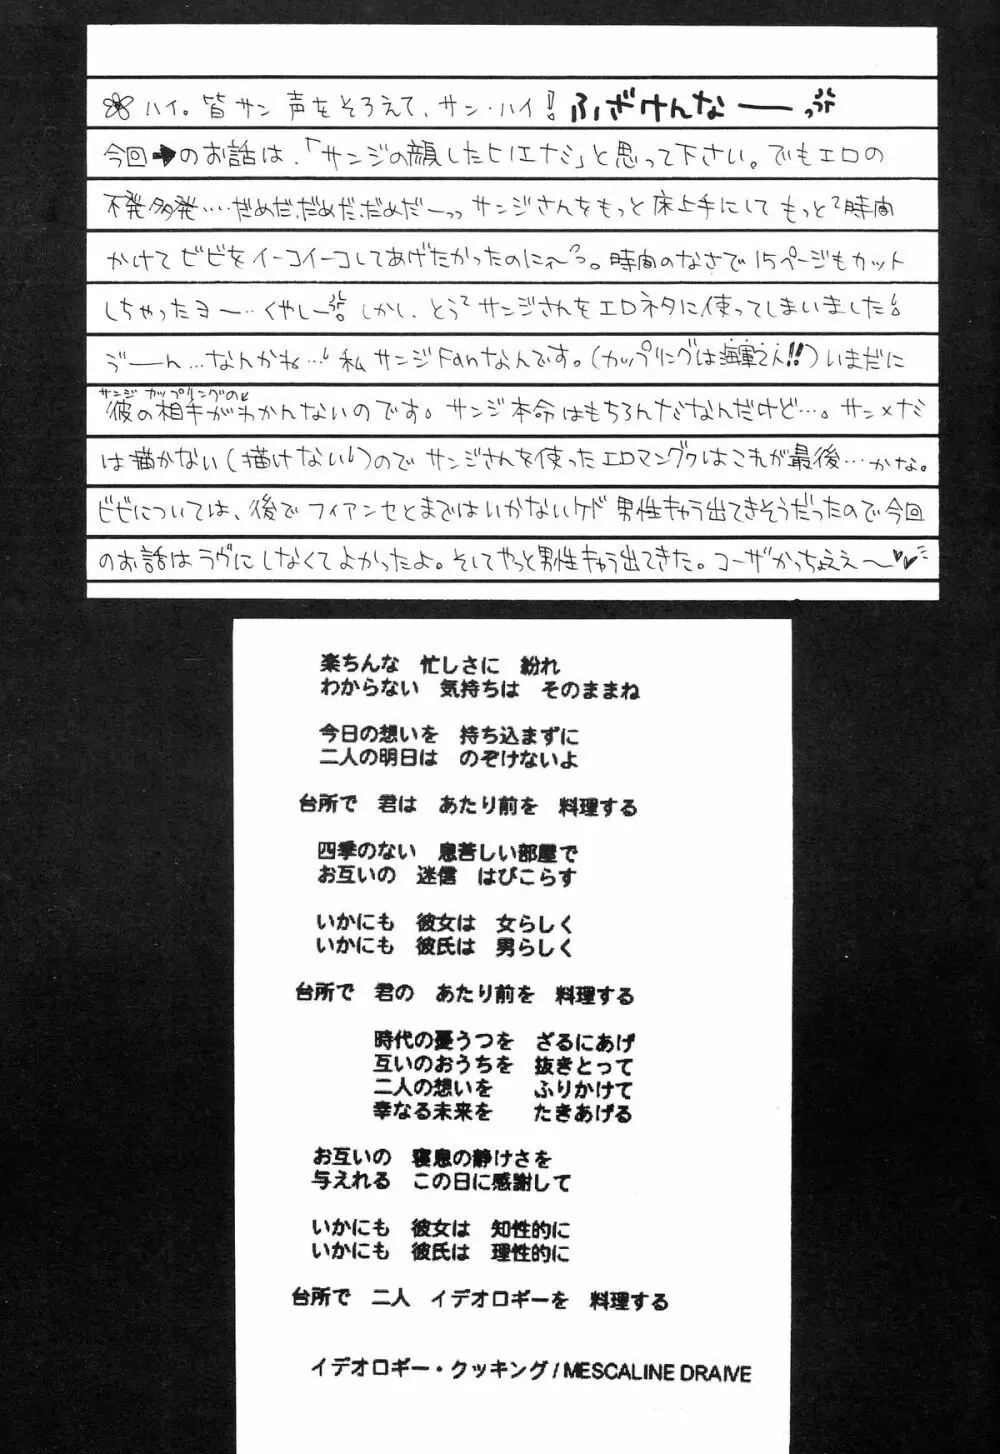 ハイ。皆サン 声をそろえて、サン・ハイ! ふざけんなーーっ
今回➡のお話は、「サンジの顔したヒノエナミ」と思って下さい。でもエロの
不発多発‥‥だめだ、だめだ、だめだーっっ サンジさんをもっと床上手にして もっと2時間
かけて ビビをイーコイーコしてあげたかったのにぇ〜っ。時間のなさで15ページもカット
しちゃったヨー…くやしー。しかし、とうとうサンジさんをエロネタに使ってしまいました!
ジーーん…なんかね…! 私 サンジFanなんです。(カップリングは海軍さん!!)いまだに
サンジ カップリングの
彼の相手がわかんないのです。サンジ本命はもちろんナミなんだけど…。サン×ナミ
は描かない(描けない!)ので サンジさんを使ったエロマングヮはこれが最後…かな。
ビビについては、後でフィアンセとまではいかないケド 男性キャラ出てきそうだったので今回
のお話はラヴにしなくてよかったよ。そしてやっと男性キャラ出てきた。コーザかっちょええ〜
楽ちんな 忙しさに 紛れ
わからない 気持ちは そのままね
今日の想いを 持ち込まずに
二人の明日は のぞけないよ
台所で 君は あたり前を 料理する
四季のない 息苦しい部屋で
お互いの 迷信 はびこらす
いかにも 彼女は 女らしく
いかにも 彼氏は 男らしく
台所で 君の あたり前を 料理する
時代の憂うつを ざるにあげ
互いのおうちを 抜きとって
二人の想いを ふりかけて
幸なる未来を たきあげる
お互いの 寝息の静けさを
与えれる この日に感謝して
いかにも 彼女は 知性的に
いかにも 彼氏は 理性的に
台所で 二人 イデオロギーを 料理する
イデオロギー・クッキング/MESCALINE DRAIVE